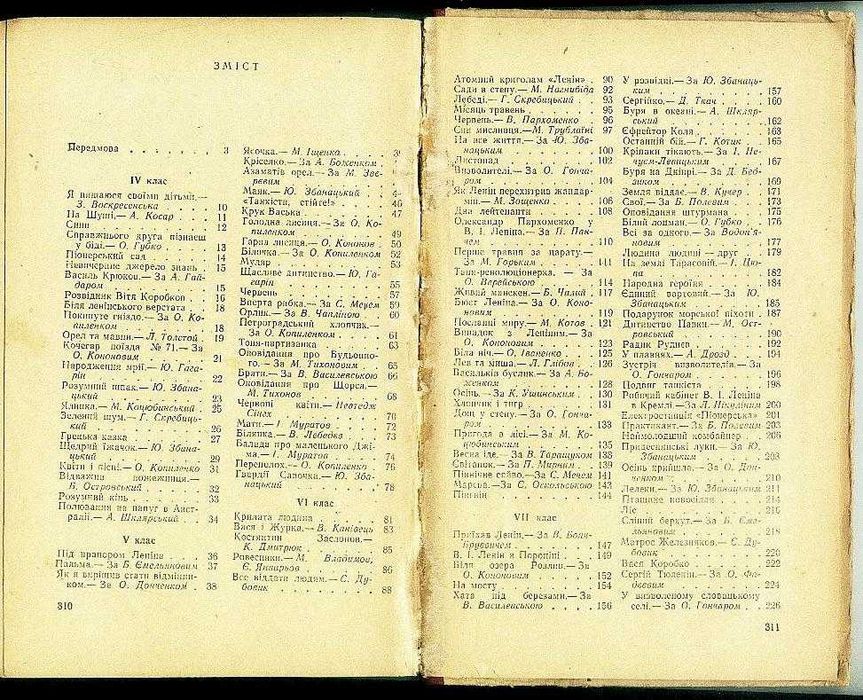 ЗМІСТ
Передмова . . . . . . . 3
IV клас
Я пишаюся своїми дітьми.—
З. Воскресенська . . . . 10
На Шуші.— А. Косар . . . 11
Сини . . . . . . . . . 12
Справжнього друга пізнаєш
у біді.— О. Губко . . . . 13
Піонерський сад . . . . . 14
Невичерпне джерело знань . 15
Василь Крюков.— За А. Гай-
даром . . . . . . . . 15
Розвідник Вітя Коробков . . 16
Біля ленінського верстата . . 18
Покинуте гніздо.— За О. Ко-
пиленком . . . . . . . 18
Орел та миші.— Л. Толстой 19
Кочегар поїзда № 71.— За
О. Кононовим . . . . . 21
Народження мрії.— Ю. Гага-
рін . . . . . . . . . 22
Розумний шпак.— Ю. Збана-
цький . . . . . . . . 23
Ялинка.— М. Коцюбинський . 25
Зелений шум.— Г. Скребиць-
кий . . . . . . . . . 26
Грецька казка . . . . . . 27
Щедрий їжачок.— Ю. Збана-
цький . . . . . . . . 29
Квіти і пісні.— О. Копиленко 31
Відважна пожежниця.—
Б. Островський . . . . . 32
Розумний кінь . . . . . . 33
Полювання на папуг в Авст-
ралії.— А. Шклярський . . 34
V клас
Під прапором Леніна . . . 36
Пальма.— За Б. Ємельяновим 37
Як я вирішив стати відмінни-
ком.— За О. Донченком . . 38
310
Ясочка.— М. Іщенко . . .
Кріселко.— За А. Боженком .
Азаматів орел.— За М. Зве-
ревим
Маяк.— Ю. Збанацький . .
«Танкісти, стійте!» . . . . 46
Крук Васька . . . . . . 47
Голодна лисиця.— За О. Ко-
пиленком . . . . . . . 49
Гарна лисиця.— О. Кононов . 50
Білочка.— За О. Копиленком 52
Муляр . . . . . . . . . 53
Щасливе дитинство.— Ю. Га-
гарін . . . . . . . . 55
Червень . . . . . . . . 57
Вперта рибка.— За С. Мечем 59
Орлик.— За В. Чапліною . . 60
Петроградський хлопчик.—
За О. Копиленком . . . . 61
Тоня-партизанка . . . . . 63
Оповідання про Будьонно-
го.— За М. Тихоновим . . 65
Брати.— За В. Василевською 66
Оповідання про Щорса.—
М. Тихонов . . . . . . 68
Червоні квіти.—
. . . . . . . . 70
Мати.— І. Муратов . . . 72
Білянка.— В. Лебедєва . . 73
Балада про маленького Джі-
ма.— І. Муратов . . . . 74
Переполох.— О. Копиленко . 76
Гвардії Савочка.— Ю. Зба-
нацький . . . . . . . 78
VI клас
Крилата людина . . . . . 81
Вася і Журка.— В. Канівець 83
Костянтин Заслонов.—
К. Дмитрюк . . . . . . 85
Ровесники.— М. Владимов,
Є. Янтирьов . . . . . . 86
Все віддати людям.— С. Ду-
бовик . . . . . . . . 88
Атомний криголам «Ленін» . 90
Сади в степу.— М. Нагнибіда 92
Лебеді.— Г. Скребицький . . 93
Місяць травень . . . . . 95
Червень.— В. Пархоменко . 96
Син мисливця.— М. Трублаїні 97
На все життя.— За Ю. Зба-
нацьким . . . . . . . 100
Листопад . . . . . . . . 102
Визволителі.— За О. Гонча-
ром . . . . . . . . . 104
Як Ленін перехитрив жандар-
мів.— М. Зощенко . . . . 106
Два лейтенанти . . . . . 108
Олександр Пархоменко у
В. І. Леніна.— За П. Пан-
чем . . . . . . . . . 110
Перше травня за ґрати.—
За М. Горьким . . . . . 141
Танк-революціонерка.— За
О. Верейською . . . . . 114
Живий манекен.— Б. Чалий 117
Бюст Леніна.— За О. Коно-
новим . . . . . . . . 119
Посланці миру.— М. Котов . 121
Випадок з Леніним.— За
О. Кононовим . . . . . 123
Біла ніч.— О. Іваненко . . 125
Лев та миша.— Л. Глібов . 126
Васильків буслик.— За А. Бо-
женком . . . . . . . . 128
Осінь.— За К. Ушинським . 130
Хлопчик і тигр . . . . . 131
Дощ у степу.— За О. Гонча-
ром . . . . . . . . . 133
Пригода в лісі.— За М. Ко-
цюбинським . . . . . . 135
Весна іде.— За В. Таращуком 138
Світанок.— За П. Мирним . 139
Північне сяйво.— За С. Мечем 141
Марсьа.— За С. Оскольською 143
Пінгвін . . . . . . . . 144
VII клас
Приїхав Ленін.— За В. Бонч-
Бруєвичем . . . . . . 147
В. І. Ленін в Пороніні . . 149
Біля озера Розлив.— За
О. Кононовим . . . . . 152
На мосту . . . . . . . . 154
Хата під березами.— За
В. Василевською . . . . 156
У розвідці.— За Ю. Збанаць-
ким . . . . . . . . . 157
Сергійко.— Д. Ткач . . . 160
Буря в океані.— А. Шкляр-
ський . . . . . . . . 162
Єфрейтор Коля . . . . . 163
Останній бій.— Г. Котик . 165
Кріпаки тікають.— За І. Не-
чуєм-Левицьким . . . . 167
Буря на Дніпрі.— За Д. Бед-
зиком . . . . . . . . 169
Земля віддає.— В. Кучер . 171
Свої.— За Б. Полевим . . 173
Оповідання штурмана . . . 175
Білий лоцман.— О. Губко . 176
Всі за одного.— За Водоп'я-
новим . . . . . . . . 177
Людина людині — друг . . 179
На землі Тарасовій.— І. Цю-
па . . . . . . . . . . 182
Народна героїня . . . . . 184
Єдиний вартовий.— За Ю.
Збанацьким . . . . . . 185
Подарунок морської піхоти . 187
Дитинство Павки.— М. Ост-
ровський . . . . . . . 190
Радик Руднєв . . . . . . 192
У плавнях.— А. Дрозд . . 194
Зустріч визволителів.— За
О. Гончаром . . . . . . 196
Подвиг танкіста . . . . . 198
Робочий кабінет В. І. Леніна
в Кремлі.— За Л. Нікуліним 200
Електростанція «Піонерська» 201
Практикант.— За Б. Полевим 203
Наймолодший комбайнер . . 206
Придеснянські луки.— За Ю.
Збанацьким . . . . . . 208
Осінь прийшла.— За О. Дон-
ченком . . . . . . . . 210
Лелеки.— За Ю. Збанацьким 211
Пташине новосілля . . . . 214
Ліс . . . . . . . . . . 216
Сліпий беркут.— За Б. Єме-
льяновим . . . . . . . 218
Матрос Железняков.— С. Ду-
бовик . . . . . . . . 220
Вася Коробко . . . . . . 222
Сергій Тюленін.— За О. Фа-
дєєвим . . . . . . . . 224
У визволеному словацькому
селі.— За О. Гончаром . . 226
311